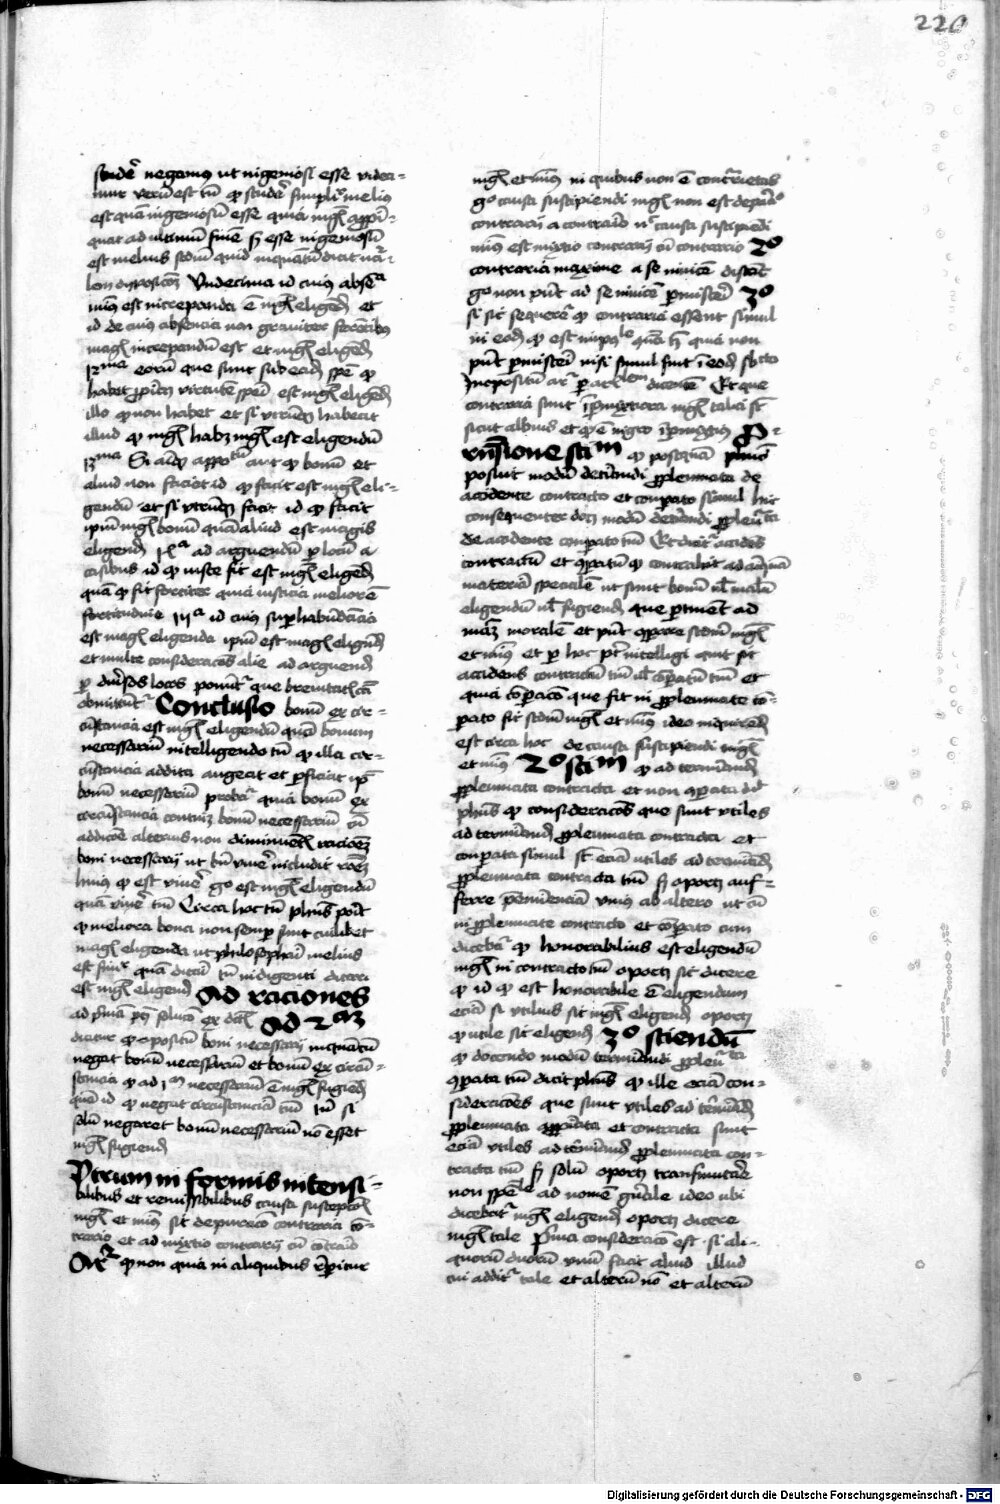 220
studere negamus ut ingeniosi esse videa-
mur verum est tamen quod studere simpliciter melius
est quam ingeniosum esse quia magis appropin-
quat ad ultimum finem sed esse ingeniosum
est melius secundum quid inquantum dicit natura-
lem disposicionem Undecima id cuius absencia
magis est increpanda est magis eligendum et
id de cuius absencia non graviter ferentibus
magis increpandum est et magis eligendum
12ma eorum que sunt sub eadem specie quod
habet propriam virtutem speciei est magis eligendum
illo quod non habet et si utrumque habeat
illud quod magis habet magis est eligendum
13ma Si aliquod appositum aut quod bonum et
aliud non faciat id quod facit est magis eli-
gendum et si utrumque facit id quod facit
ipsum magis bonum quam aliud est magis
eligendum ad arguendum per locum a
casibus id quod iuste fit est magis eligendum
quam quod fit fortiter quia iusticia melior est
fortitudine id cuius superhabundancia
est magis eligenda ipsum est magis eligendum
et multe consideraciones alie ad arguendum
per diversos locos ponuntur que brevitatis causa
obmittuntur Conclusio bonum ex cir-
cumstancia est magis eligendum quam bonum
necessarium intelligendo tamen quod illa cir-
cumstancia addita augeat et perficiat ipsum
bonum necessarium probatur quia bonum ex
circumstancia continet bonum necessarium cum
addicione alterius non diminuentis racionem
boni necessarii ut bene vivere includit racionem
huius quod est vivere ergo est magis eligendum
quam vivere tamen Circa hoc tamen philosophus ponit
quod meliora bona non semper sunt cuilibet
magis eligenda ut philosophari melius
est simpliciter quam ditari tamen indigenti ditari
est magis eligendum Ad raciones
ad primam patet solucio ex dictis Ad 2am
dicitur quod oppositum boni necessarii inquantum
negat bonum necessarium et bonum ex circum-
stancia quod ad necessarium est magis fugiendum
quam id quod negat circumstanciam tamen si
solum negaret bonum necessarium non esset
magis fugiendum
Utrum in formis intensi-
bilibus et remissibilibus causa suscepcionis
magis et minus sit depuracio contrarii a con-
trario et ad mixtio contrarii cum contrario
Arguitur quod non quia in aliquibus reperitur
magis et minus in quibus non est contrarietas
ergo causa suscipiendi magis non est depuracio
contrarii a contrario nec causa suscipiendi
minus est mixtio contrarii cum contrario 2o
contraria maxime a se invicem distant
ergo non possunt ad se invicem permisceri 3o
si sic sequeretur quod contraria essent simul
in eodem quod est impossibile quia non
possunt permisceri nisi simul sint in eodem subiecto
In oppositum arguitur dicentem Et que
contraria sunt impermixtiora magis talia sunt
sicut albius est quod est nigro impermixtius Pro
responsione sciendum quod postquam philosophus
posuit modum determinandi problemata de
accidente contracto et comparato simul hic
consequenter dat modum determinandi problemata
de accidente comparato tantum Et dicitur accidens
contractum et comparatum quod contrahitur ad aliquam
materiam specialem ut sunt bonum vel malum
eligendum vel fugiendum que pertinent ad
materiam moralem et possunt comparare secundum magis
et minus et per hoc potest intelligi quid sit
accidens contractum tantum vel comparatum tantum et
quia comparacio que fit in problemate com-
parato fit secundum magis et minus ideo inquirendum
est circa hoc de causa suscipiendi magis
et minus 2o sciendum quod ad terminandum
problemata contracta et non comparata dicit
philosophus quod consideraciones que sunt utiles
ad terminandum problemata contracta et
comparata simul sunt eciam utiles ad terminandum
problemata contracta tantum sed oportet auf-
ferre preeminenciam unius ab altero ut cum
in problemate contracto et comparato cum
dicebatur quod honorabilius est eligendum
magis in contracto tantum oportet sic dicere
quod id quod est honorabile est eligendum
eciam si utilius sit magis eligendum oportet
quod utile sit eligendum 3o sciendum
quod docendo modum terminandi problemata
comparata tantum dicit philosophus quod ille eciam con-
sideraciones que sunt utiles ad terminandum
problemata comparata et contracta sunt
eciam utiles ad terminandum problemata con-
tracta tantum sed solum oportet transmutare
nomen speciale ad nomen generale ideo ubi
dicebatur magis eligendum oportet dicere
magis tale Prima consideracio est si ali-
quorum duorum unum facit aliud illud
cui additur tale et alterum non et alterum
Digitalisierung gefördert durch die Deutsche Forschungsgemeinschaft - DFG